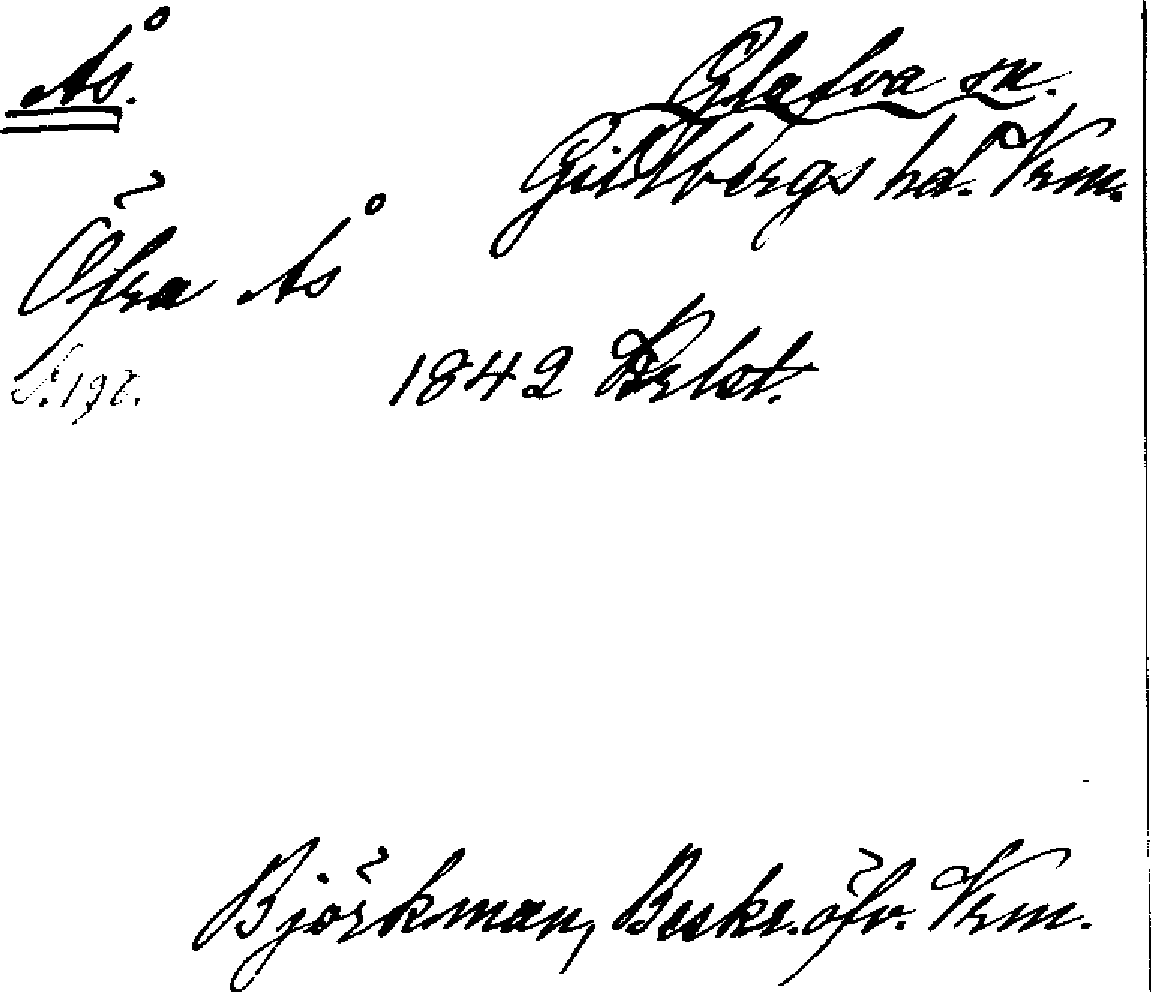 Ås.
Glafva sn.
Gillbergs hd. Vrm.
Öfra Ås
1842
Björkman, Beskr. öfv. Vrm.